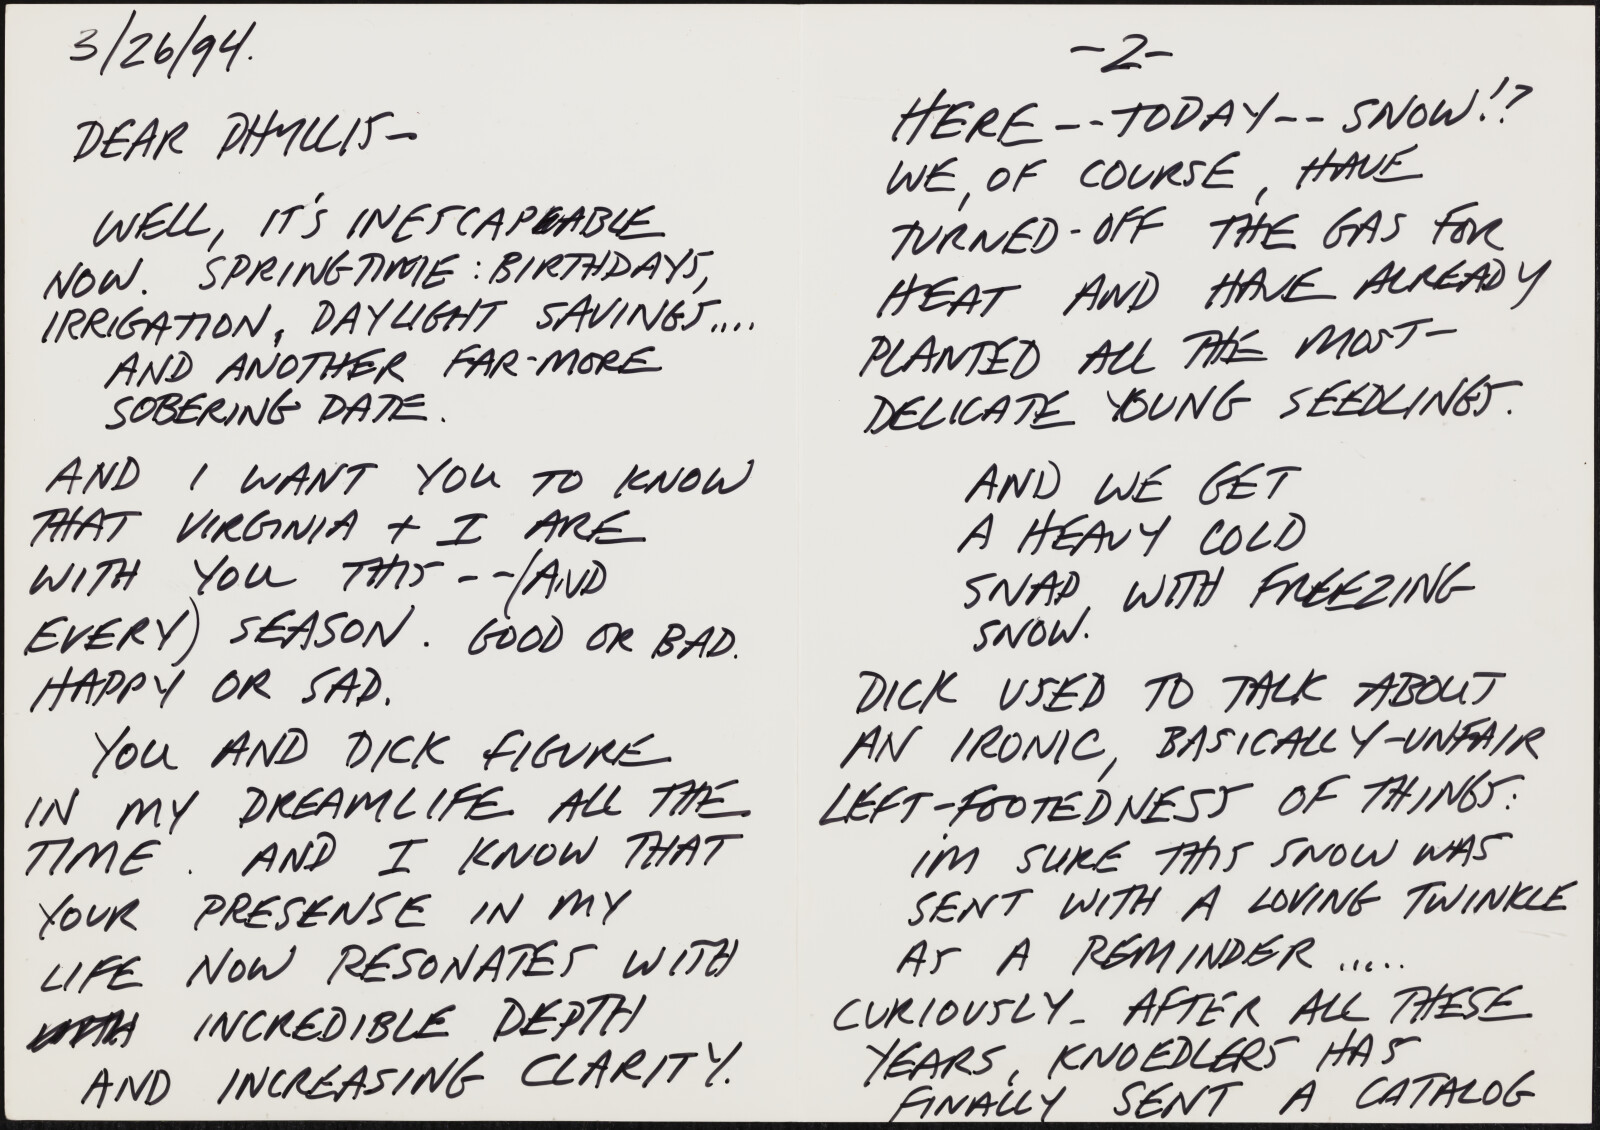 3/26/94.
DEAR PHYLLIS—
WELL, IT'S INESCAPABLE
NOW. SPRINGTIME: BIRTHDAYS,
IRRIGATION, DAYLIGHT SAVINGS....
AND ANOTHER FAR-MORE
SOBERING DATE.
AND I WANT YOU TO KNOW
THAT VIRGINIA + I ARE
WITH YOU THIS -- (AND
EVERY) SEASON. GOOD OR BAD.
HAPPY OR SAD.
YOU AND DICK FIGURE
IN MY DREAMLIFE ALL THE
TIME. AND I KNOW THAT
YOUR PRESENSE IN MY
LIFE NOW RESONATES WITH
INCREDIBLE DEPTH
AND INCREASING CLARITY.
-2-
HERE -- TODAY -- SNOW!?
WE, OF COURSE, HAVE
TURNED-OFF THE GAS FOR
HEAT AND HAVE ALREADY
PLANTED ALL THE MOST-
DELICATE YOUNG SEEDLINGS.
AND WE GET
A HEAVY COLD
SNAP, WITH FREEZING
SNOW.
DICK USED TO TALK ABOUT
AN IRONIC, BASICALLY-UNFAIR
LEFT-FOOTEDNESS OF THINGS:
I'M SURE THIS SNOW WAS
SENT WITH A LOVING TWINKLE
AS A REMINDER.....
CURIOUSLY- AFTER ALL THESE
YEARS, KNOEDLERS HAS
FINALLY SENT A CATALOG